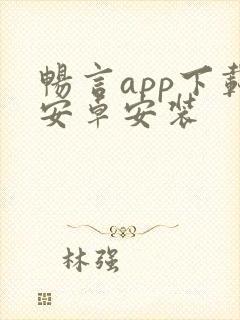 暢言app下載
安卓安装
林强